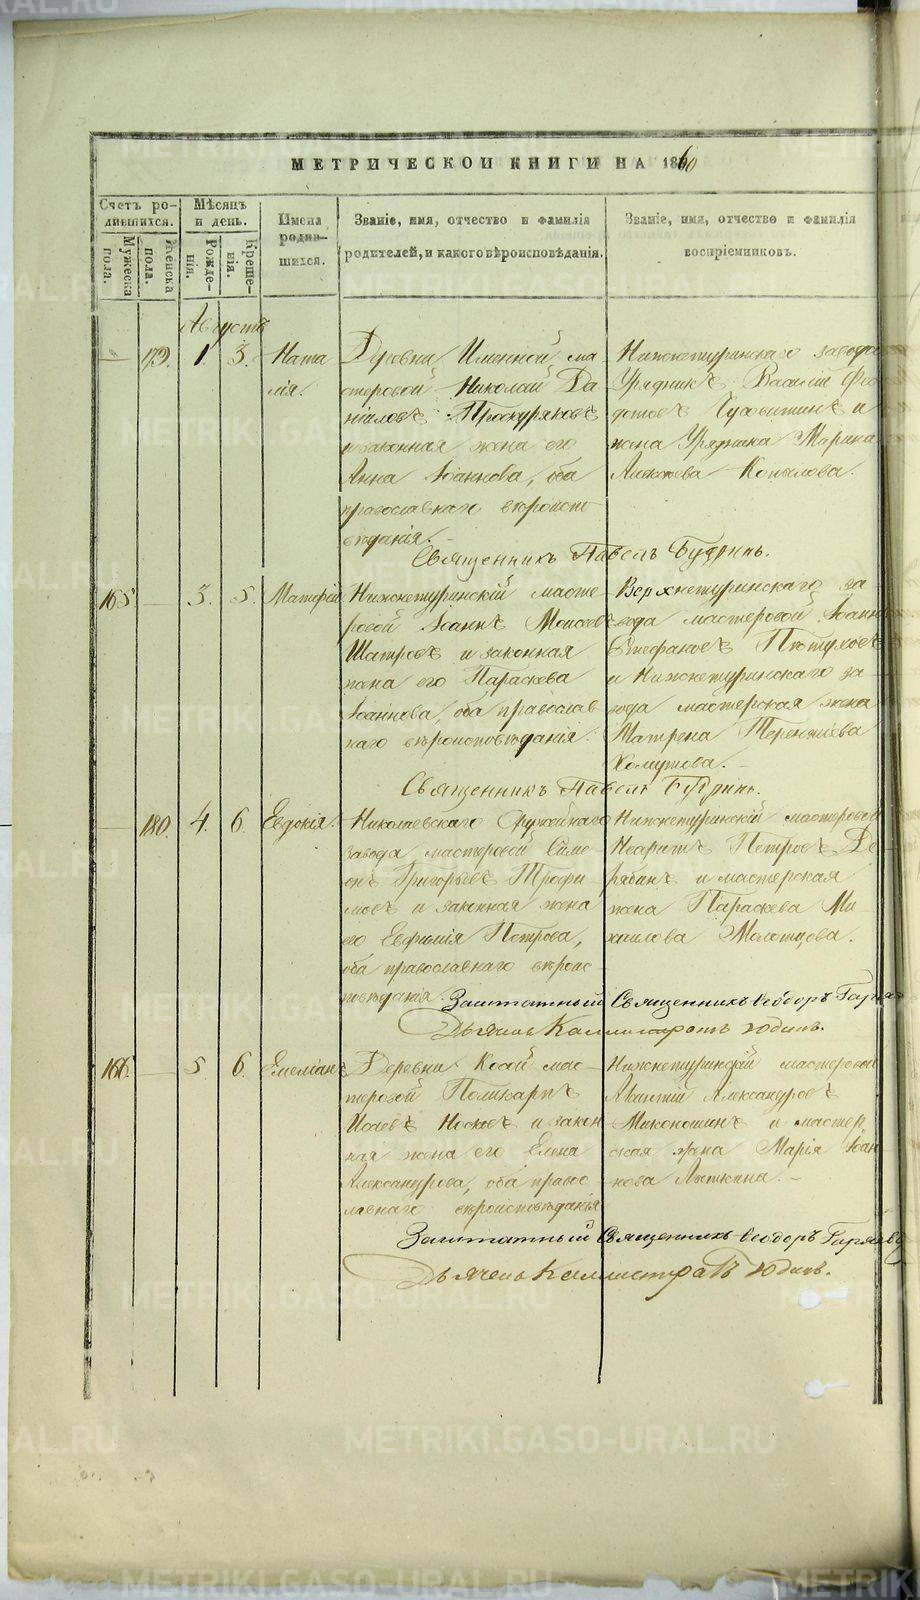 МЕТРИЧЕСКОЙ КНИГИ НА 1860
Счетъ родившихся.
Мѣсяцъ и день.
Имена родившихся.
Званіе, имя, отчество и фамилія родителей, и какого вѣроисповѣданія.
Званіе, имя, отчество и фамилія воспріемниковъ.
Мужеска пола.
Женска пола.
Рожденія.
Крещенія.
Августъ
179. 1. 3. Наталія.
Деревни Именной мастеровой Николай Даніиловъ Проскуряковъ и законная жена его Анна Іоаннова, оба православнаго вѣроисповѣданія.
Нижнетуринскаго завода Урядникъ Василій Ѳедотовъ и жена Урядника Марина Алексѣева Копылова.
Священникъ Павелъ Будринъ.
165. 3. 5. Матѳій
Нижнетуринскій мастеровой Іоаннъ Моисеевъ Шатровъ и законная жена его Параскева Іоаннова, оба православнаго вѣроисповѣданія.
Верхнетуринскаго завода мастеровой Іоаннъ Стефановъ Пѣтуховъ и Нижнетуринскаго завода мастерская жена Матрена Терентіева Хомутова.
Священникъ Павелъ Будринъ.
180. 4. 6. Евдокія.
Николаевскаго Оружейнаго завода мастеровой Симеонъ Григорьевъ Трофимовъ и законная жена его Евфимія Петрова, оба православнаго вѣроисповѣданія.
Нижнетуринскій мастеровой Неофитъ Петровъ Дерябинъ и мастерская жена Параскева Михаилова Молотцова.
Заштатный Священникъ Ѳеодоръ
Дьячекъ Каллистратъ Юдинъ.
166. 5. 6. Емеліанъ
Деревни Косой мастеровой Поликарпъ Исаевъ Носовъ и законная жена его Елена Александрова, оба православнаго вѣроисповѣданія
Нижнетуринскій мастеровой Александровъ и мастерская жена Марія Іоаннова Лыткина.
Заштатный Священникъ Ѳеодоръ
Дьячекъ Каллистратъ Юдинъ.
METRIKI.GASO-URAL.RU